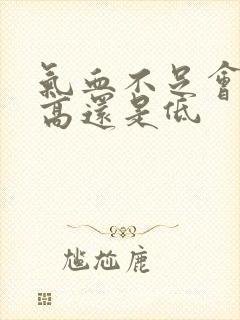 氣血不足會
高還是低
尷尬鹿